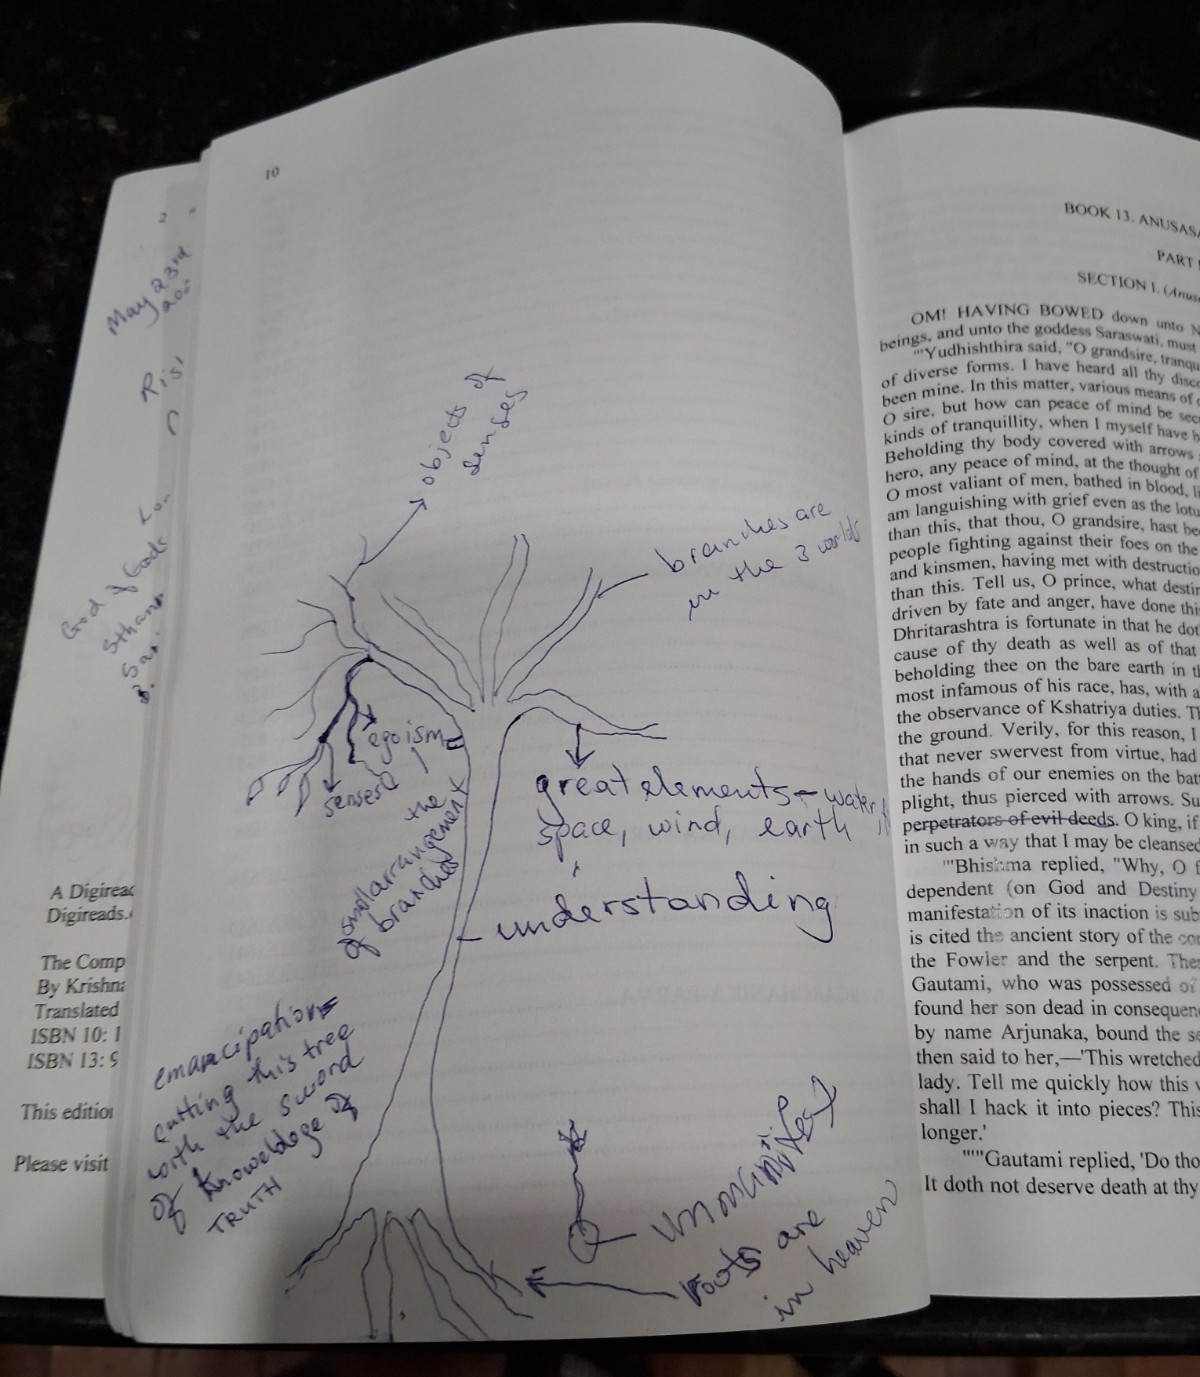 2
May 23rd
God of Gods
A Digirea
Digireads.
The Comp
By Krishna
Translated
ISBN 10: 1
ISBN 13: 9
This edition
Please visit
10
objects of
senses
branches are
in the 3 worlds
egoism
senses
the
small arrangement
of branches
great elements - water,
space, wind, earth
understanding
emancipation
cutting this tree
with the sword
of Knoweldge of
TRUTH
unmanifest
roots are
in heaven
BOOK 13. ANUSAS
PART
SECTION I. (Anus
OM! HAVING BOWED down unto N
beings, and unto the goddess Saraswati, must
"'Yudhishthira said, "O grandsire, tranqu
of diverse forms. I have heard all thy disc
been mine. In this matter, various means of
O sire, but how can peace of mind be sec
kinds of tranquillity, when I myself have b
Beholding thy body covered with arrows
hero, any peace of mind, at the thought of
O most valiant of men, bathed in blood, li
am languishing with grief even as the lotu
than this, that thou, O grandsire, hast be
people fighting against their foes on the
and kinsmen, having met with destructio
than this. Tell us, O prince, what destin
driven by fate and anger, have done thi
Dhritarashtra is fortunate in that he dot
cause of thy death as well as of that
beholding thee on the bare earth in th
most infamous of his race, has, with a
the observance of Kshatriya duties. Th
the ground. Verily, for this reason, I
that never swervest from virtue, had
the hands of our enemies on the bat
plight, thus pierced with arrows. Su
perpetrators of evil deeds. O king, if
in such a way that I may be cleansed
"'Bhishma replied, "Why, O f
dependent (on God and Destiny
manifestation of its inaction is sub
is cited the ancient story of the con
the Fowler and the serpent. The
Gautami, who was possessed of
found her son dead in consequen
by name Arjunaka, bound the se
then said to her,—'This wretched
lady. Tell me quickly how this w
shall I hack it into pieces? This
longer.'
"'"Gautami replied, 'Do tho
It doth not deserve death at thy